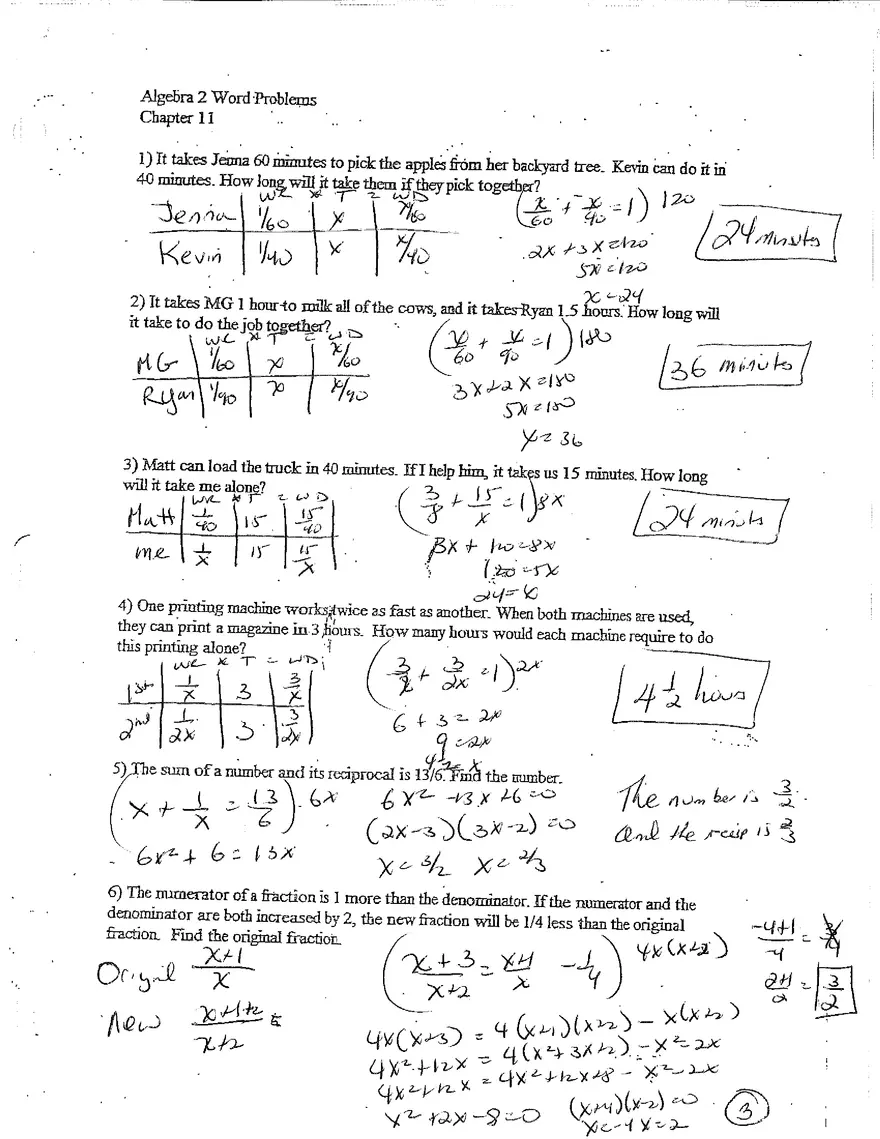 Algebra 2 Word Problems
Chapter 11
1) It takes Jenna 60 minutes to pick the apples from her backyard tree. Kevin can do it in
40 minutes. How long will it take them if they pick together?
WR × T = WD
Jenna 1/60 x x/60
Kevin 1/40 x x/40
(x/60 + x/40 = 1) 120
2x + 3x = 120
5x = 120
x = 24
24 minutes
2) It takes MG 1 hour to milk all of the cows, and it takes Ryan 1.5 hours. How long will
it take to do the job together?
WR × T = WD
MG 1/60 x x/60
Ryan 1/90 x x/90
(x/60 + x/90 = 1) 180
3x + 2x = 180
5x = 180
x = 36
36 minutes
3) Matt can load the truck in 40 minutes. If I help him, it takes us 15 minutes. How long
will it take me alone?
WR × T = WD
Matt 1/40 15 15/40
me 1/x 15 15/x
(3/8 + 15/x = 1) 8x
3x + 120 = 8x
120 = 5x
24 = x
24 minuts
4) One printing machine works twice as fast as another. When both machines are used,
they can print a magazine in 3 hours. How many hours would each machine require to do
this printing alone?
WR × T = WD
1st 1/x 3 3/x
2nd 1/2x 3 3/2x
(3/x + 3/2x = 1) 2x
6 + 3 = 2x
9 = 2x
4 1/2 = x
4 1/2 hours
5) The sum of a number and its reciprocal is 13/6. Find the number.
(x + 1/x = 13/6) 6x
6x² + 6 = 13x
6x² - 13x + 6 = 0
(2x-3)(3x-2) = 0
x = 3/2 x = 2/3
The number is 3/2.
and the recip is 2/3
6) The numerator of a fraction is 1 more than the denominator. If the numerator and the
denominator are both increased by 2, the new fraction will be 1/4 less than the original
fraction. Find the original fraction.
Original x+1/x
New x+1+2/x+2 =
(x+3/x+2 = x+1/x - 1/4) 4x(x+2)
4x(x+3) = 4(x+1)(x+2) - x(x+2)
4x² + 12x = 4(x²+3x+2) - x² - 2x
4x² + 12x = 4x² + 12x + 8 - x² - 2x
x² + 2x - 8 = 0
(x+4)(x-2) = 0
x = -4 x = 2
-4+1/-4 = 3/4
2+1/2 = 3/2
3